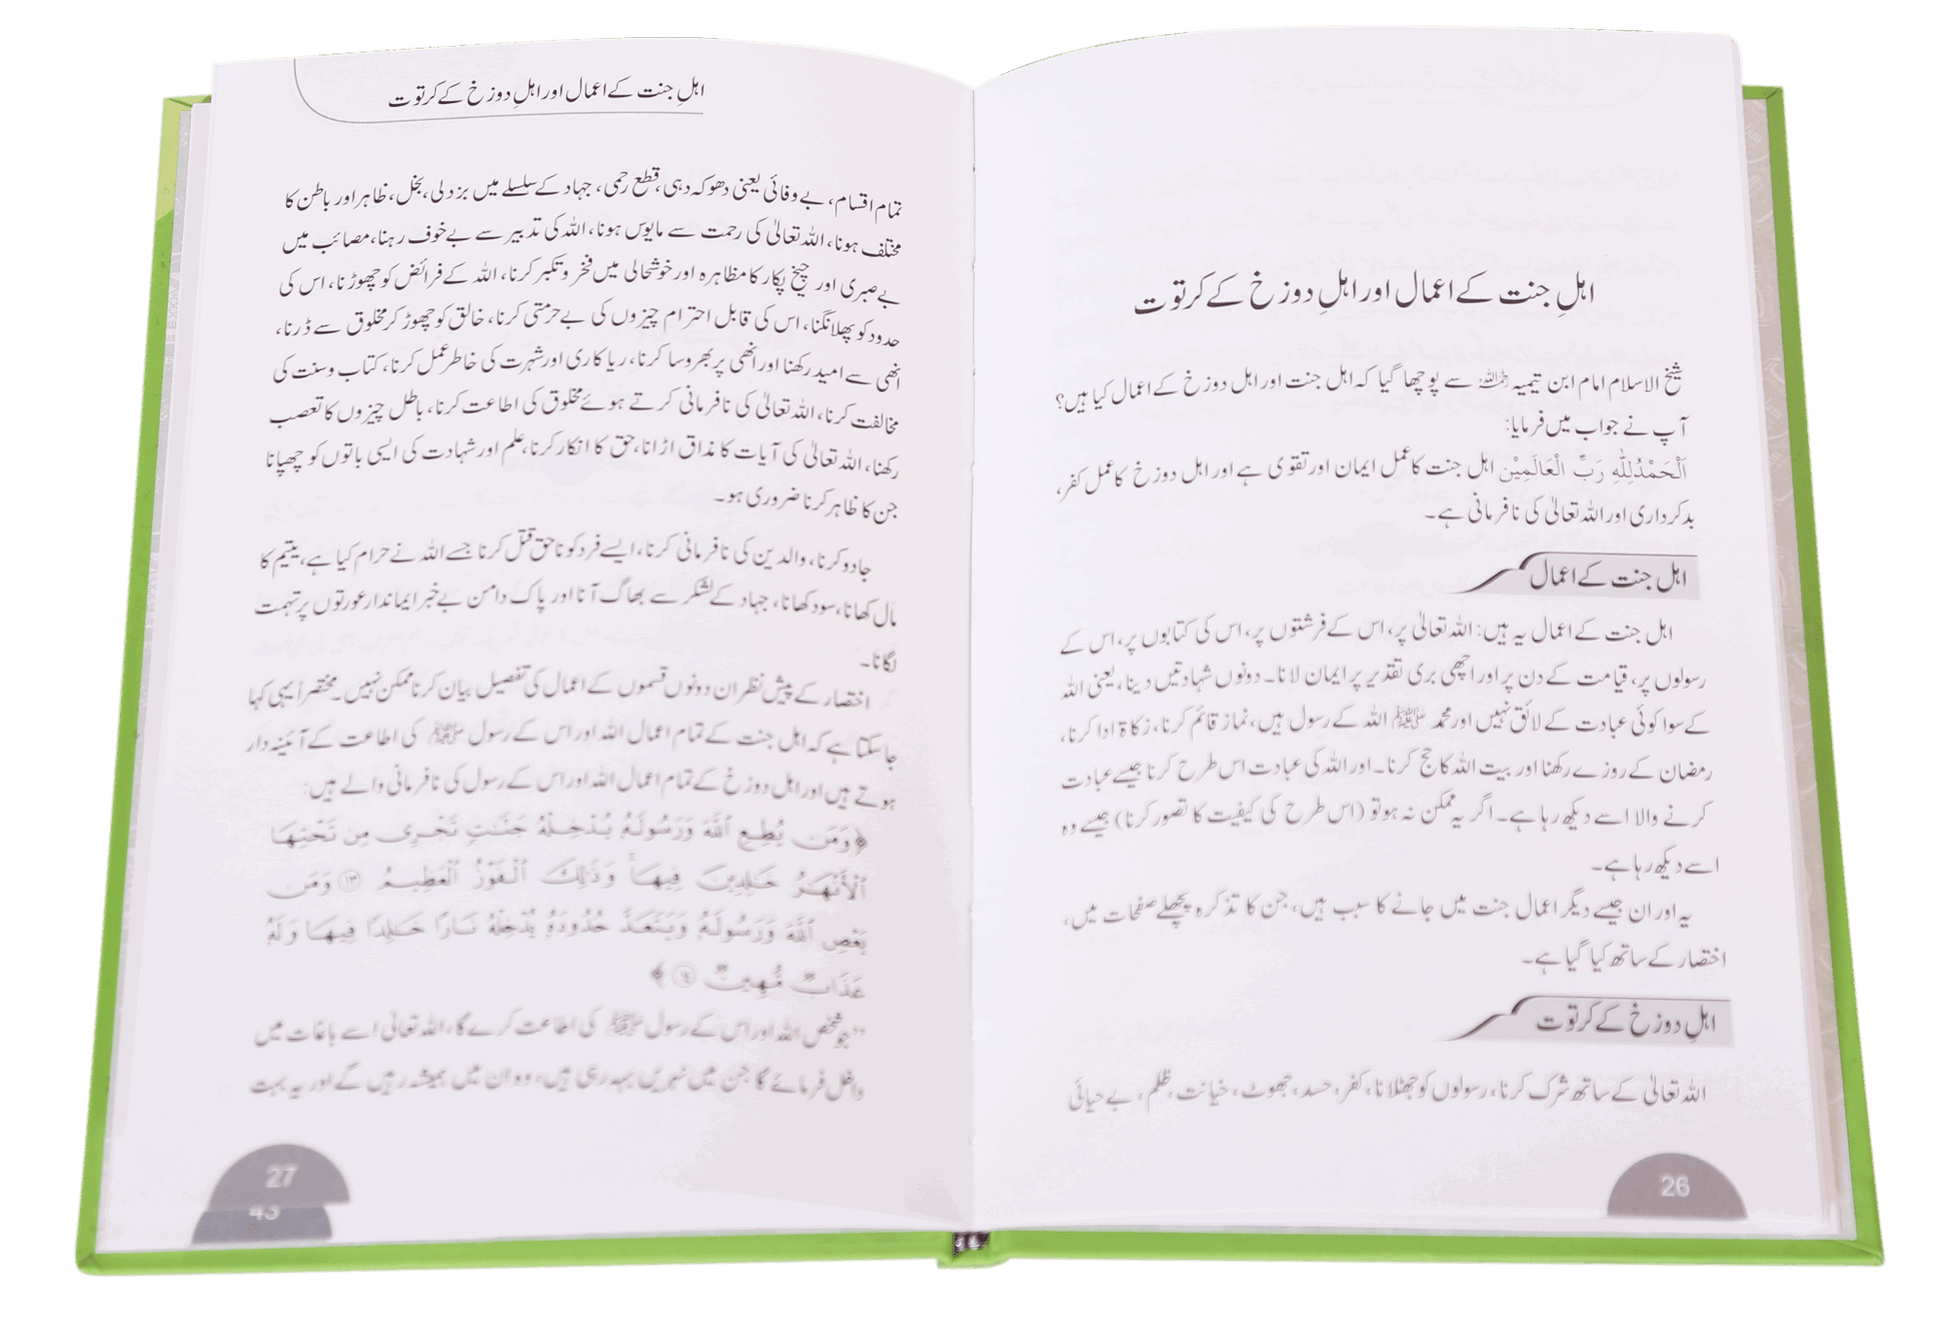 اہلِ جنت کے اعمال اور اہلِ دوزخ کے کرتوت
شیخ الاسلام امام ابن تیمیہ رحمہ اللہ سے پوچھا گیا کہ اہل جنت اور اہل دوزخ کے اعمال کیا ہیں؟
آپ نے جواب میں فرمایا:
اَلْحَمْدُلِلّٰہِ رَبِّ الْعَالَمِیْنَ اہل جنت کا عمل ایمان اور تقوی ہے اور اہل دوزخ کا عمل کفر،
بدکرداری اور اللہ تعالیٰ کی نافرمانی ہے۔
اہل جنت کے اعمال
اہل جنت کے اعمال یہ ہیں: اللہ تعالیٰ پر، اس کے فرشتوں پر، اس کی کتابوں پر، اس کے
رسولوں پر، قیامت کے دن پر اور اچھی بری تقدیر پر ایمان لانا۔ دونوں شہادتیں دینا، یعنی اللہ
کے سوا کوئی عبادت کے لائق نہیں اور محمد ﷺ اللہ کے رسول ہیں، نماز قائم کرنا، زکاۃ ادا کرنا،
رمضان کے روزے رکھنا اور بیت اللہ کا حج کرنا۔ اور اللہ کی عبادت اس طرح کرنا جیسے عبادت
کرنے والا اسے دیکھ رہا ہے۔ اگر یہ ممکن نہ ہو تو (اس طرح کی کیفیت کا تصور کرنا) جیسے وہ
اسے دیکھ رہا ہے۔
یہ اور ان جیسے دیگر اعمال جنت میں جانے کا سبب ہیں، جن کا تذکرہ پچھلے صفحات میں،
اختصار کے ساتھ کیا گیا ہے۔
اہلِ دوزخ کے کرتوت
اللہ تعالیٰ کے ساتھ شرک کرنا، رسولوں کو جھٹلانا، کفر، حسد، جھوٹ، خیانت، ظلم، بے حیائی
26
اہلِ جنت کے اعمال اور اہلِ دوزخ کے کرتوت
تمام اقسام، بے وفائی یعنی دھوکہ دہی، قطع رحمی، جہاد کے سلسلے میں بزدلی، بخل، ظاہر اور باطن کا
مختلف ہونا، اللہ تعالیٰ کی رحمت سے مایوس ہونا، اللہ کی تدبیر سے بے خوف رہنا، مصائب میں
بے صبری اور چیخ پکار کا مظاہرہ اور خوشحالی میں فخر و تکبر کرنا، اللہ کے فرائض کو چھوڑنا، اس کی
حدود کو پھلانگنا، اس کی قابل احترام چیزوں کی بے حرمتی کرنا، خالق کو چھوڑ کر مخلوق سے ڈرنا،
انھی سے امید رکھنا اور انھی پر بھروسا کرنا، ریاکاری اور شہرت کی خاطر عمل کرنا، کتاب وسنت کی
مخالفت کرنا، اللہ تعالیٰ کی نافرمانی کرتے ہوئے مخلوق کی اطاعت کرنا، باطل چیزوں کا تعصب
رکھنا، اللہ تعالیٰ کی آیات کا مذاق اڑانا، حق کا انکار کرنا، علم اور شہادت کی ایسی باتوں کو چھپانا
جن کا ظاہر کرنا ضروری ہو۔
جادو کرنا، والدین کی نافرمانی کرنا، ایسے فرد کو ناحق قتل کرنا جسے اللہ نے حرام کیا ہے، یتیم کا
مال کھانا، سود کھانا، جہاد کے لشکر سے بھاگ آنا اور پاک دامن بے خبر ایماندار عورتوں پر تہمت
لگانا۔
اختصار کے پیش نظر ان دونوں قسموں کے اعمال کی تفصیل بیان کرنا ممکن نہیں۔ مختصراً یہی کہا
جا سکتا ہے کہ اہل جنت کے تمام اعمال اللہ اور اس کے رسول ﷺ کی اطاعت کے آئینہ دار
ہوتے ہیں اور اہل دوزخ کے تمام اعمال اللہ اور اس کے رسول کی نافرمانی والے ہیں:
﴿وَمَن يُطِعِ ٱللَّهَ وَرَسُولَهُۥ يُدْخِلْهُ جَنَّـٰتٍ تَجْرِى مِن تَحْتِهَا
ٱلْأَنْهَـٰرُ خَـٰلِدِينَ فِيهَا ۚ وَذَٰلِكَ ٱلْفَوْزُ ٱلْعَظِيمُ ۝١٣ وَمَن
يَعْصِ ٱللَّهَ وَرَسُولَهُۥ وَيَتَعَدَّ حُدُودَهُۥ يُدْخِلْهُ نَارًا خَـٰلِدًا فِيهَا وَلَهُۥ
عَذَابٌ مُّهِينٌ ۝١٤﴾
”جو شخص اللہ اور اس کے رسول ﷺ کی اطاعت کرے گا، اللہ تعالیٰ اسے باغات میں
داخل فرمائے گا جن میں نہریں بہہ رہی ہیں، وہ ان میں ہمیشہ رہیں گے اور یہ بہت
27
43